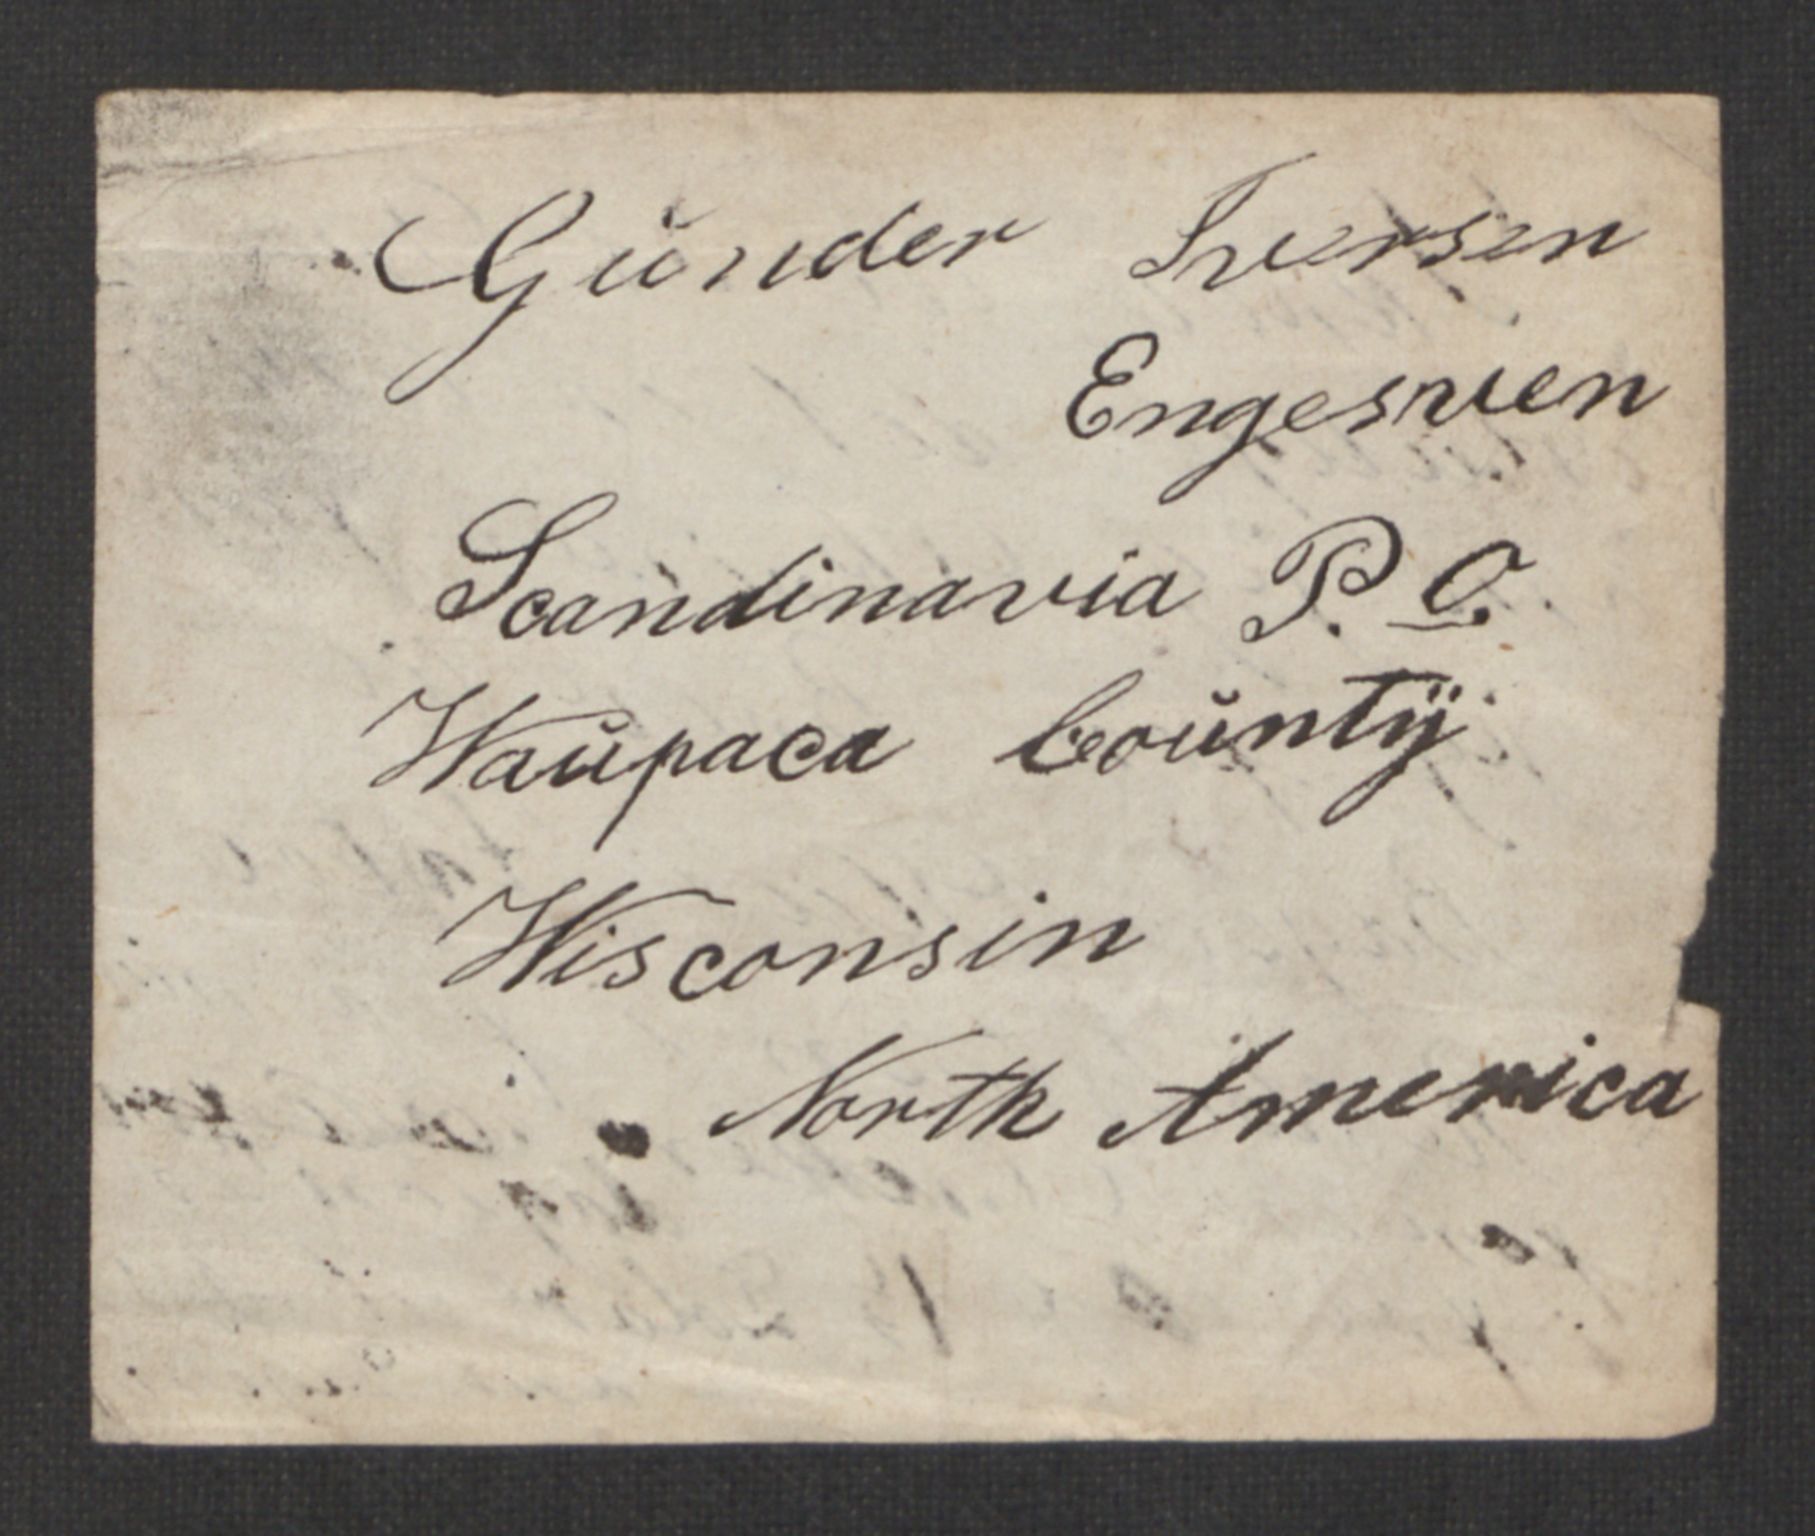 Gŭnder Iversen
Engesvien
Scandinavia P. O.
Waŭpaca Coŭntÿ
Wisconsin
North America